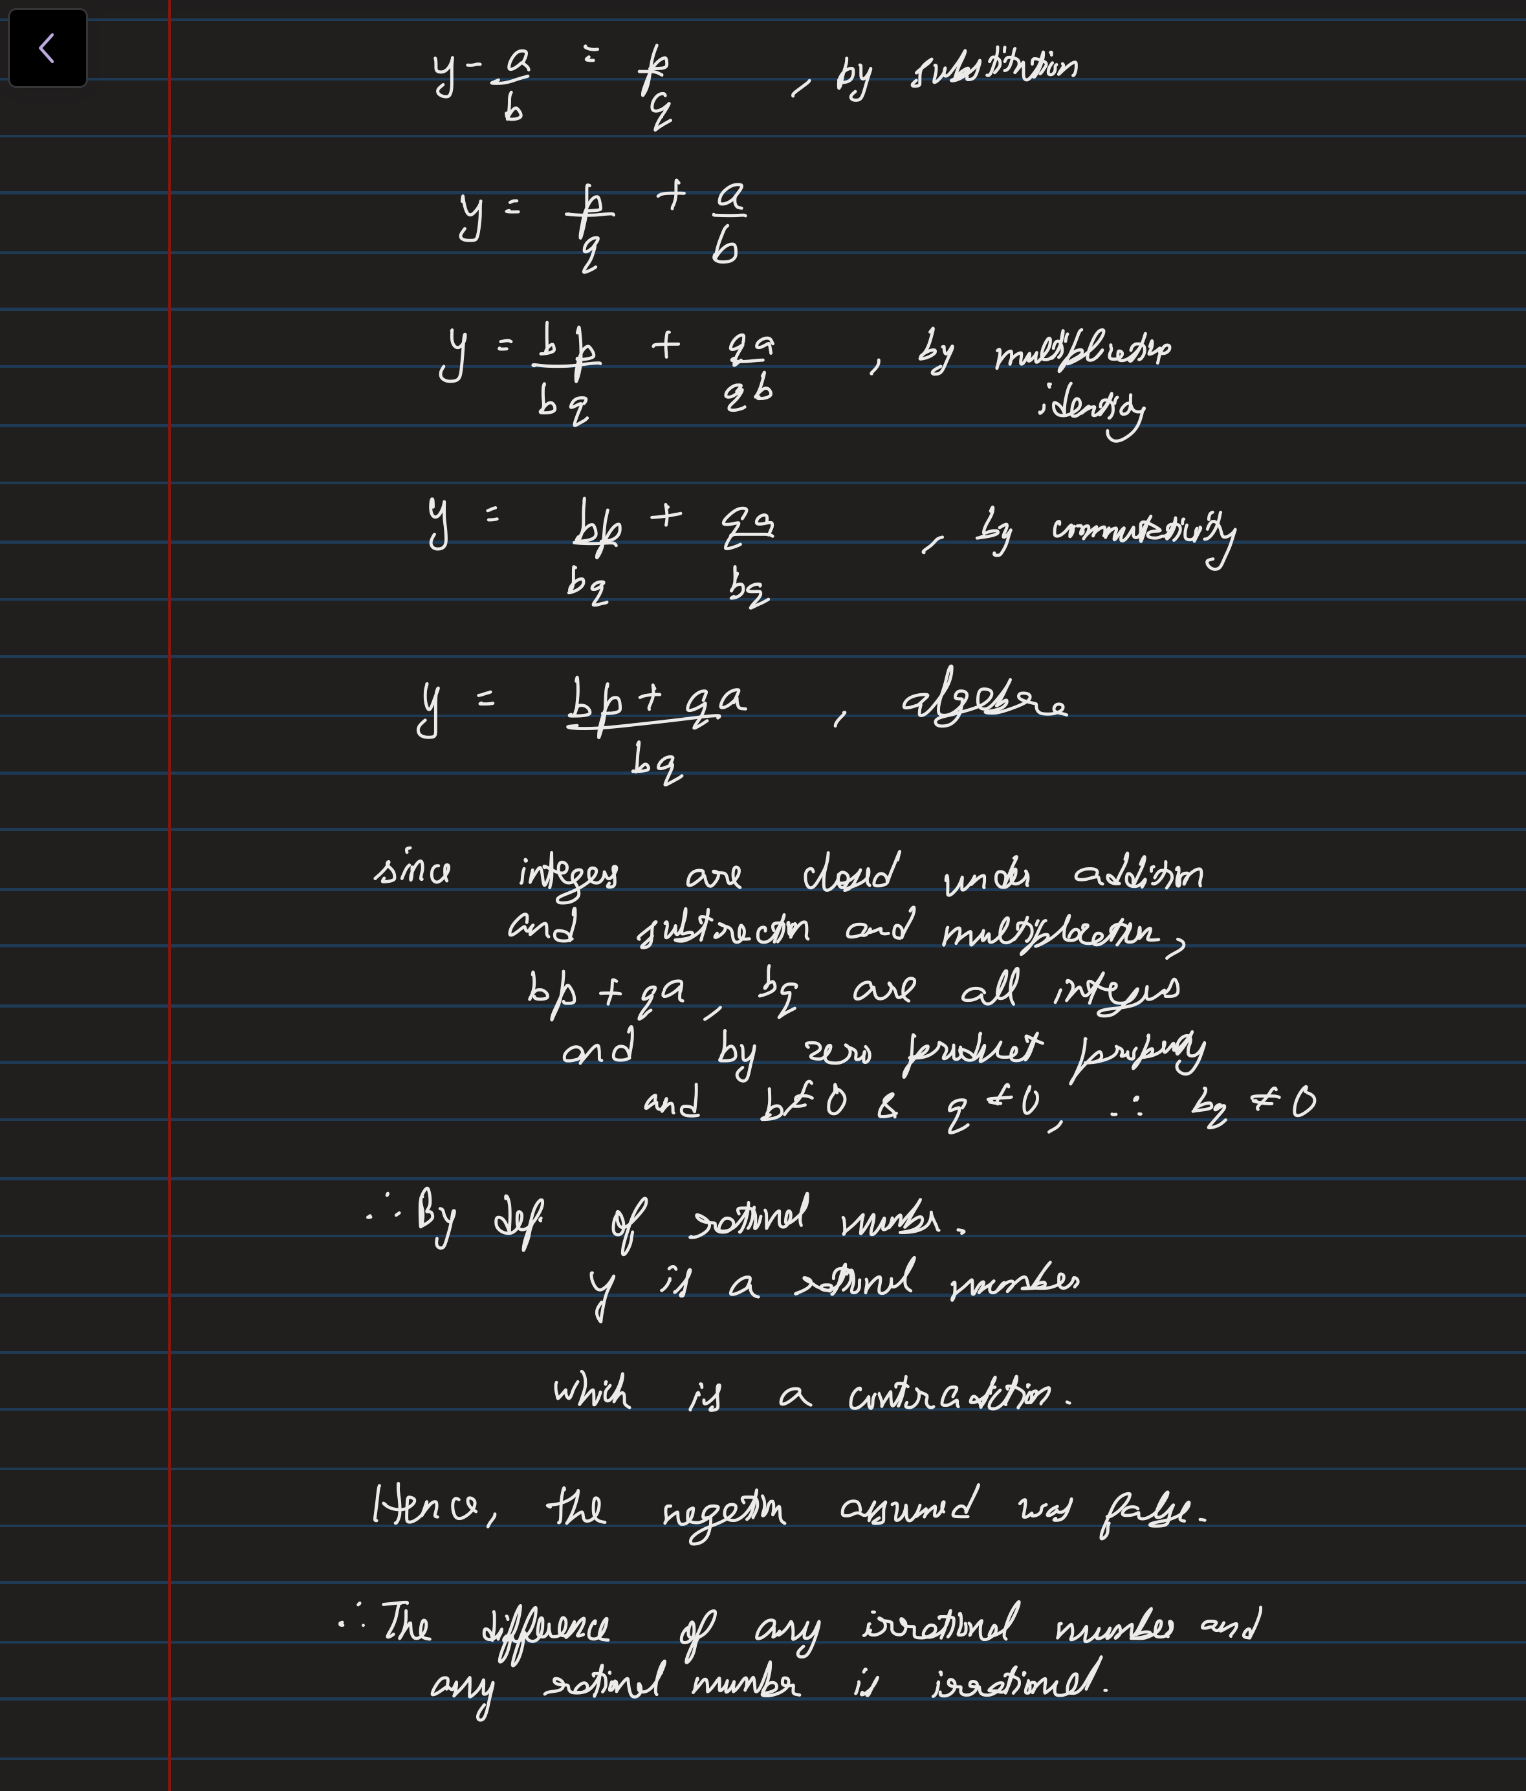 y - a/b = p/q , by substitution
y = p/q + a/b
y = bp/bq + qa/qb , by multiplicative
identity
y = bp/bq + qa/bq , by commutativity
y = (bp + qa)/bq , algebra
since integers are closed under addition
and subtraction and multiplication,
bp + qa, bq are all integers
and by zero product property
and b≠0 & q≠0, ∴ bq ≠ 0
∴ By def. of rational number.
y is a rational number
which is a contradiction.
Hence, the negation assumed was false.
∴ The difference of any irrational number and
any rational number is irrational.